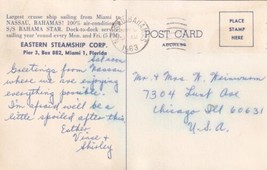 Largest cruise ship sailing from Miami to
NASSAU, BAHAMAS! 100% air-conditioned
S/S BAHAMA STAR. Dock-to-dock service
sailing year 'round every Mon. and Fri. (5 PM).
EASTERN STEAMSHIP CORP.
Pier 3, Box 882, Miami 1, Florida
Greetings from Nassau
where we are enjoying
everything possible.
I'm afraid we'll be a
little spoiled after this
Esther,
Vince &
Shirley
1963
POST CARD
ADDRESS
PLACE
STAMP
HERE
Mr. & Mrs. N.
7304
Chicago Ill 60631
U.S.A.